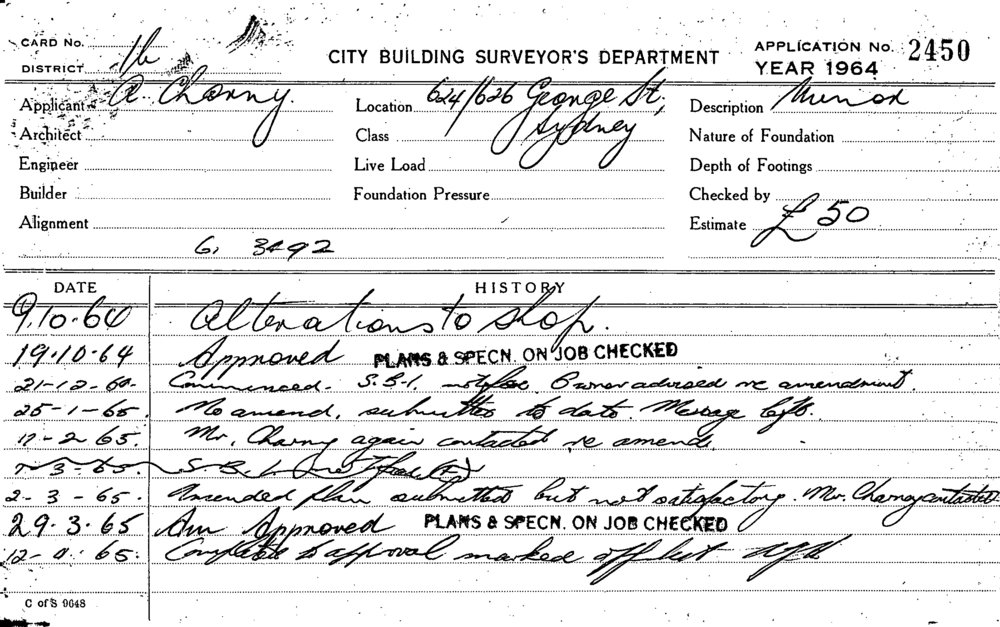 CARD No.
DISTRICT 16
CITY BUILDING SURVEYOR'S DEPARTMENT
APPLICATION No. 2450
YEAR 1964
Applicant A. Charny
Location 624/626 George St,
Sydney
Description Minor
Architect
Class
Nature of Foundation
Engineer
Live Load
Depth of Footings
Builder
Foundation Pressure
Checked by
Alignment
Estimate £50
G. 3492
DATE HISTORY
9.10.64 Alterations to shop.
19.10.64 Approved PLANS & SPECN. ON JOB CHECKED
21-12-64. Commenced. S.B.1. Owner advised re amendment.
25-1-65. No amend. submitted to date Message left.
Mr. Charny again contacted re amend.
3-65 S.B.1.
2-3-65. Amended plan submitted but not satisfactory. Mr. Charny contacted.
29.3.65 Am Approved PLANS & SPECN. ON JOB CHECKED
65. Complete to approval marked off list
C of S 9048